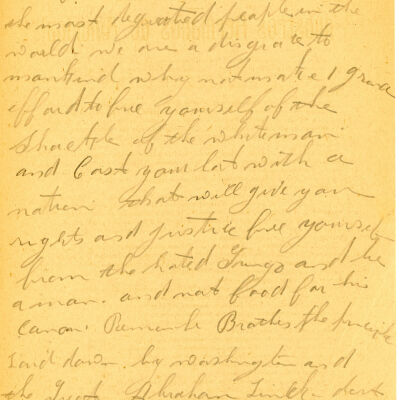 the most degraded people in the
world we are a disgrace to
mankind why not make 1 grand
effort to free yourself of the
Shackle of the white man
and Cast your lot with a
nation that will give you
rights and justice free yourself
from the hated Gringo and be
a man. and not food for his
Canon. Remember Brothers the principle
laid down by Washington and
the Great Abraham Lincoln dont